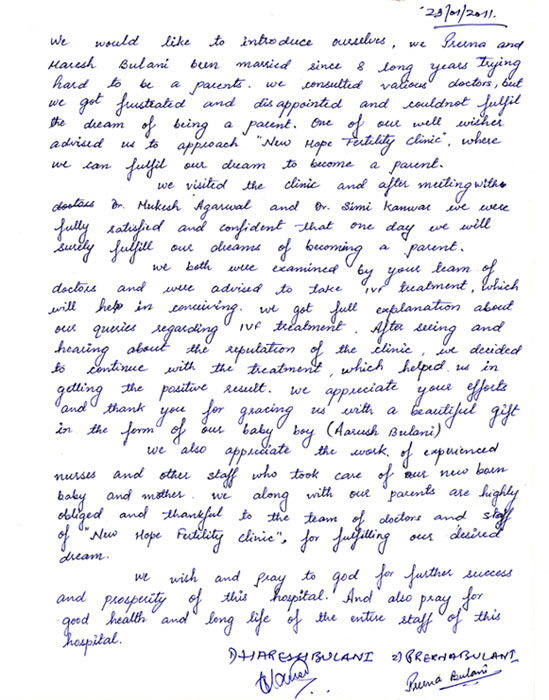 23/01/2011.
We would like to introduce ourselves, we Prerna and
Haresh Bulani been married since 8 long years trying
hard to be a parents. We consulted various doctors, but
we got frustrated and disappointed and couldnot fulfil
the dream of being a parent. One of our well wisher
advised us to approach "New Hope Fertility Clinic", where
we can fulfil our dream to become a parent.
We visited the clinic and after meeting with
doctors Dr. Mukesh Agarwal and Dr. Simi Kanwar we were
fully satisfied and confident that one day we will
surely fulfill our dreams of becoming a parent.
We both were examined by your team of
doctors and were advised to take IVF treatment, which
will help in conceiving. We got full explanation about
our queries regarding IVF treatment. After seeing and
hearing about the reputation of the clinic, we decided
to continue with the treatment, which helped us in
getting the positive result. We appreciate your efforts
and thank you for gracing us with a beautiful gift
in the form of our baby boy (Aarush Bulani)
We also appreciate the work of experienced
nurses and other staff who took care of our new born
baby and mother. We along with our parents are highly
obliged and thankful to the team of doctors and staff
of "New Hope Fertility Clinic", for fulfilling our desired
dream.
We wish and pray to god for further success
and prosperity of this hospital. And also pray for
good health and long life of the entire staff of this
hospital.
1) HARESH BULANI 2) PRERNA BULANI
Prerna Bulani